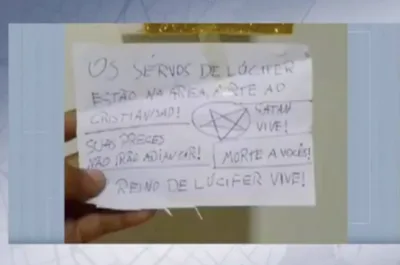 OS SERVOS DE LÚCIFER
ESTÃO NA ÁREA, MORTE AO
CRISTIANISMO!
SATAN
VIVE!
SUAS PRECES
NÃO IRÃO ADIANTAR!
MORTE A VOCÊS!
REINO DE LÚCIFER VIVE!